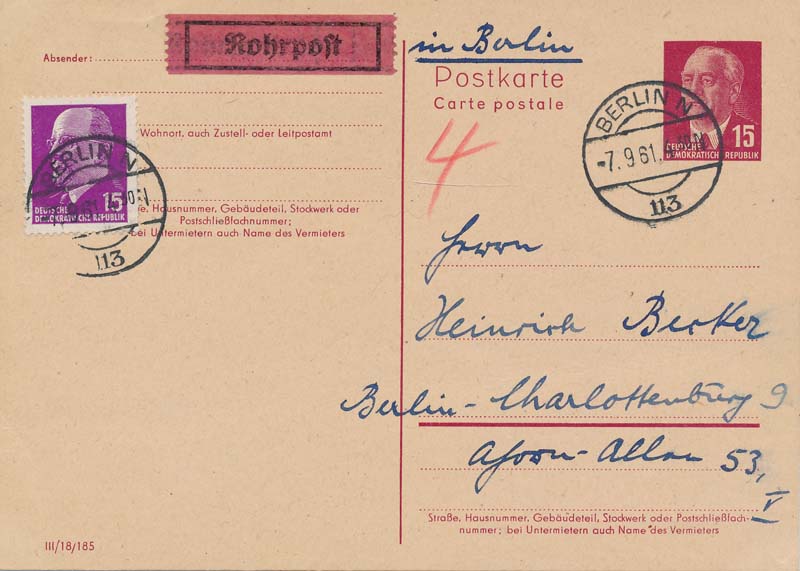 Absender:
Rohrpost
in Berlin
Postkarte
Carte postale
15
DEUTSCHE
DEMOKRATISCHE REPUBLIK
BERLIN N
-7.9.61
113
4
Wohnort, auch Zustell- oder Leitpostamt
15
DEUTSCHE
DEMOKRATISCHE REPUBLIK
BERLIN N
113
Hausnummer, Gebäudeteil, Stockwerk oder
Postschließfachnummer;
bei Untermietern auch Name des Vermieters
Herrn
Heinrich Becker
Berlin-Charlottenburg 9
Ahorn-Allee 53,
V
Straße, Hausnummer, Gebäudeteil, Stockwerk oder Postschließfach-
nummer; bei Untermietern auch Name des Vermieters
III/18/185